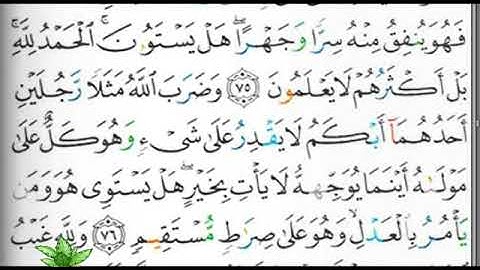 فَهُوَ يُنفِقُ مِنْهُ سِرًّا وَجَهْرًا ۖ هَلْ يَسْتَوُۥنَ ۚ ٱلْحَمْدُ لِلَّهِ ۚ
بَلْ أَكْثَرُهُمْ لَا يَعْلَمُونَ ٧٥ وَضَرَبَ ٱللَّهُ مَثَلًا رَّجُلَيْنِ
أَحَدُهُمَآ أَبْكَمُ لَا يَقْدِرُ عَلَىٰ شَىْءٍ وَهُوَ كَلٌّ عَلَىٰ
مَوْلَىٰهُ أَيْنَمَا يُوَجِّههُّ لَا يَأْتِ بِخَيْرٍ ۖ هَلْ يَسْتَوِى هُوَ وَمَن
يَأْمُرُ بِٱلْعَدْلِ ۙ وَهُوَ عَلَىٰ صِرَٰطٍ مُّسْتَقِيمٍ ٧٦ وَلِلَّهِ غَيْبُ